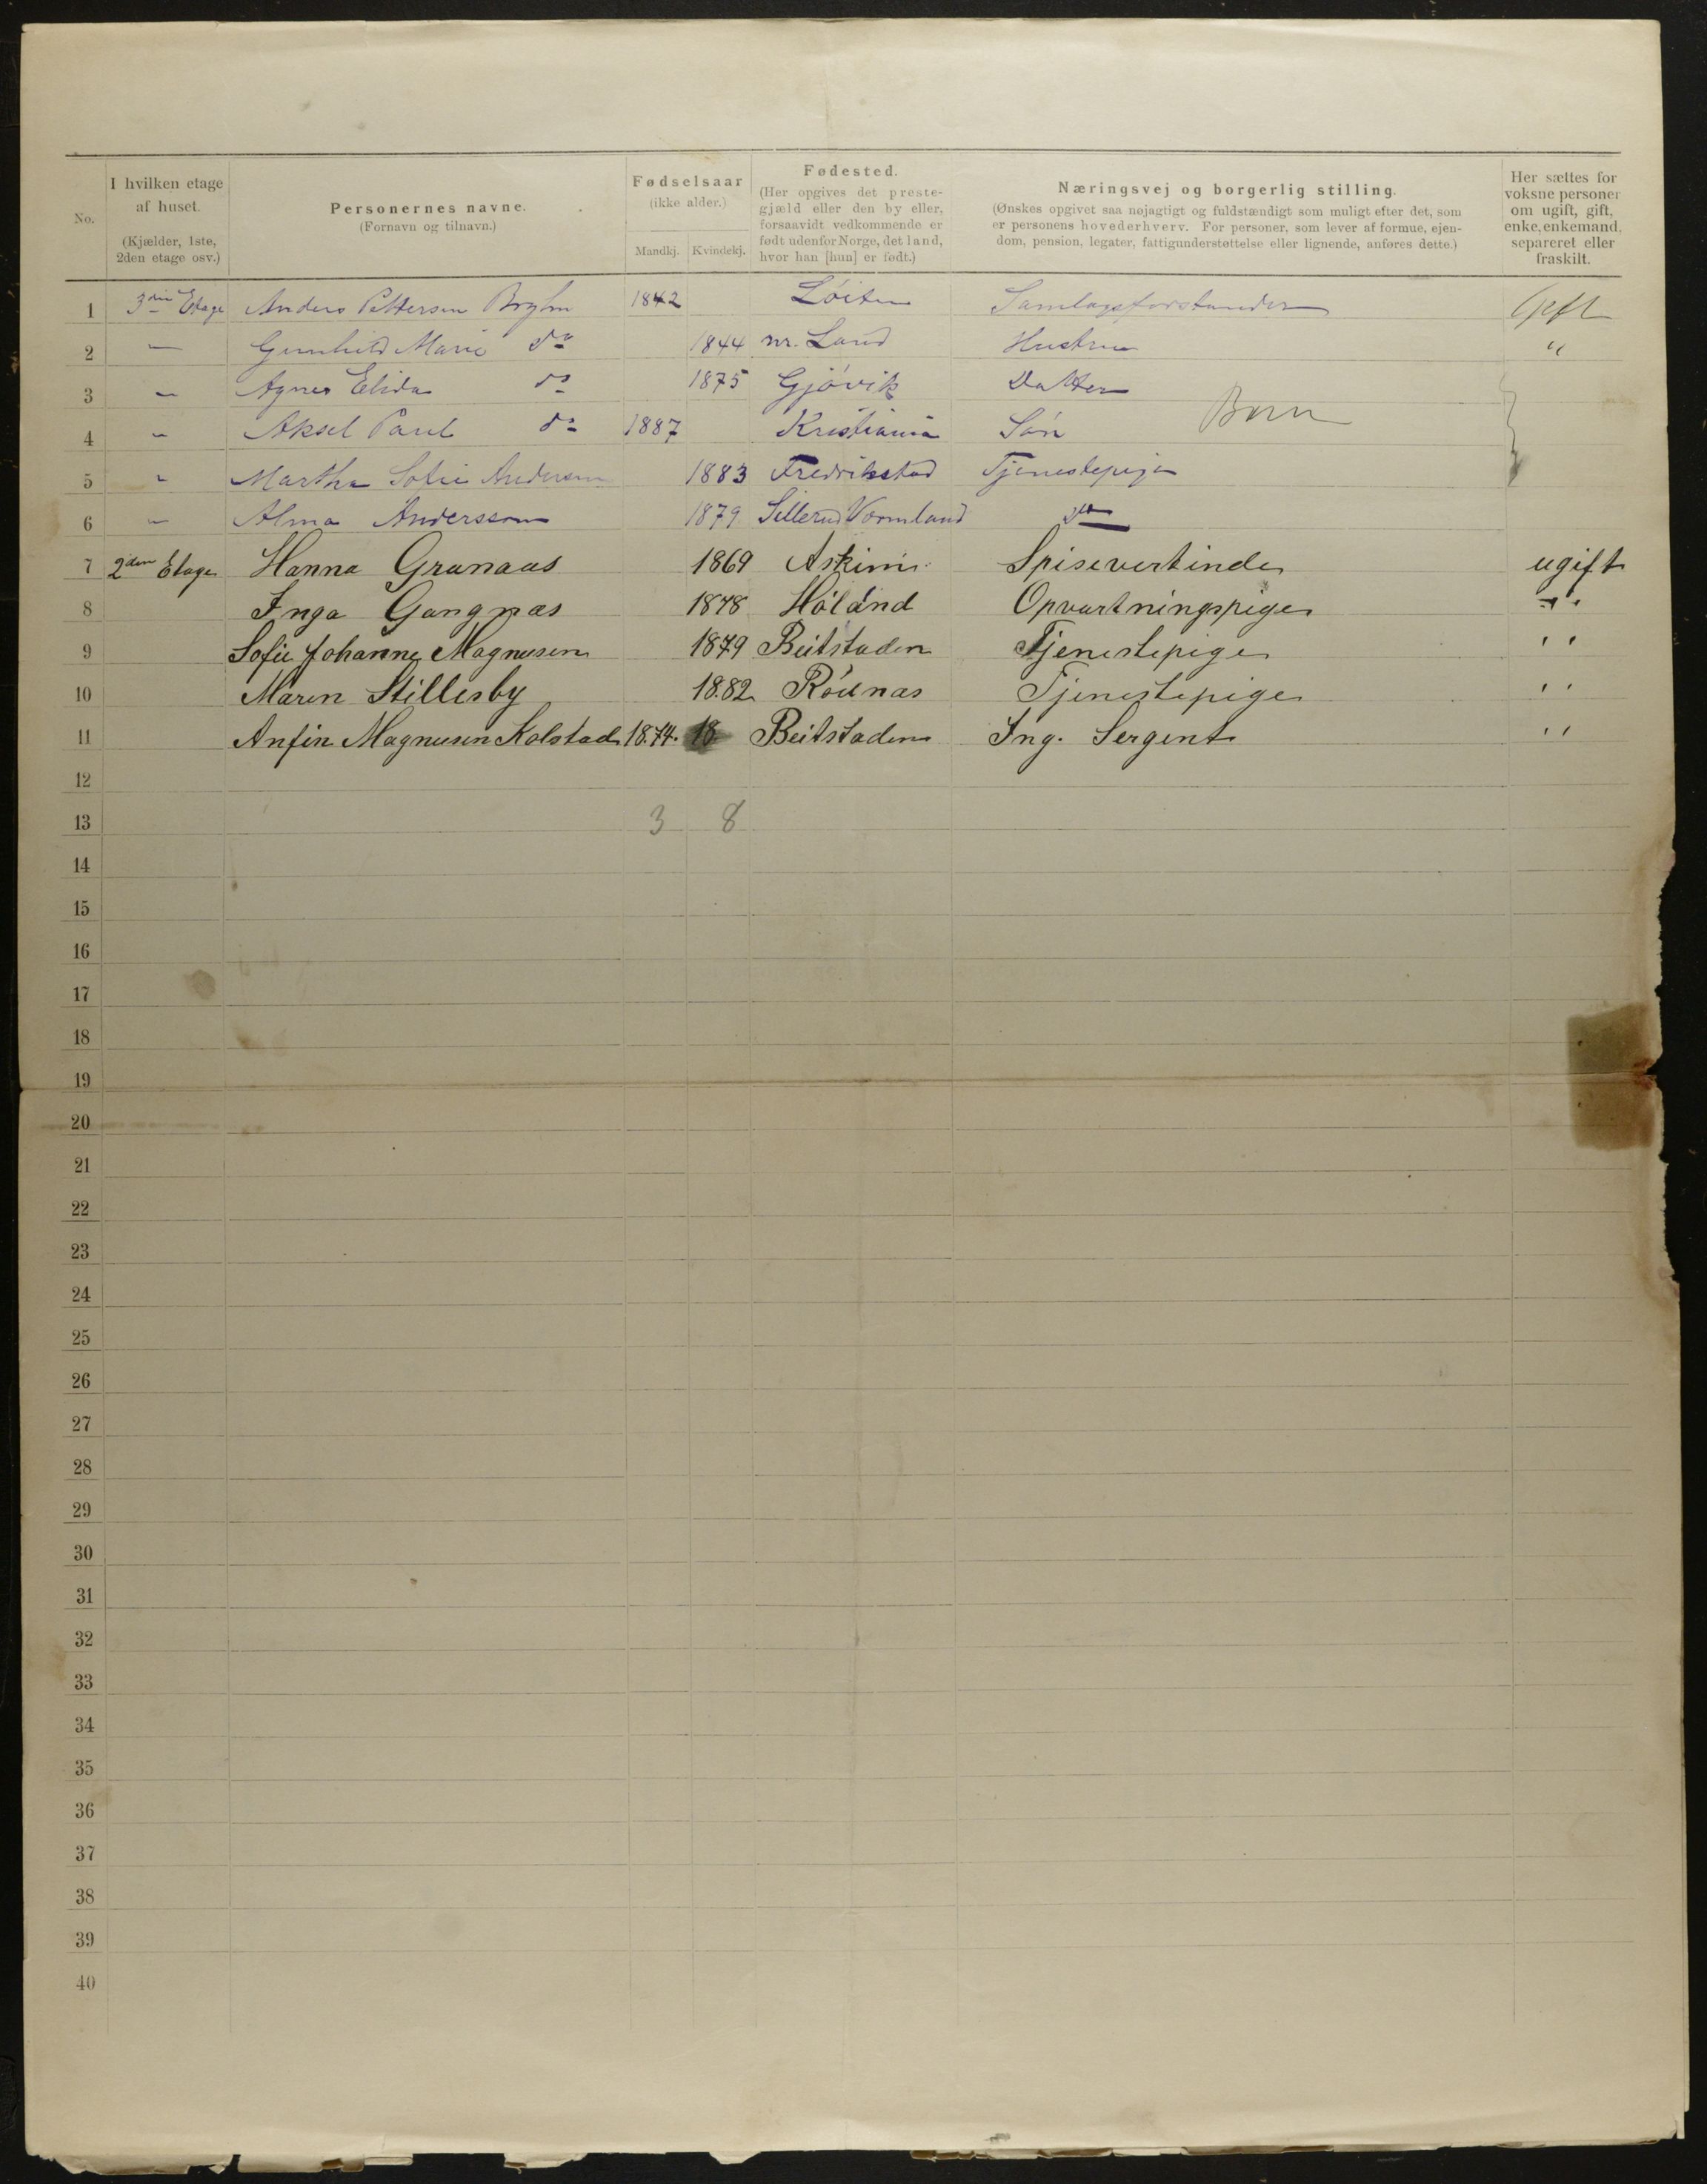 No.
I hvilken etage af huset. (Kjælder, 1ste, 2den etage osv.)
Personernes navne. (Fornavn og tilnavn.)
Fødselsaar (ikke alder.)
Mandkj. Kvindekj.
Fødested. (Her opgives det prestegjæld eller den by eller, forsaavidt vedkommende er født udenfor Norge, det land, hvor han [hun] er født.)
Næringsvej og borgerlig stilling. (Ønskes opgivet saa nøjagtigt og fuldstændigt som muligt efter det, som er personens hovederhverv. For personer, som lever af formue, ejendom, pension, legater, fattigunderstøttelse eller lignende, anføres dette.)
Her sættes for voksne personer om ugift, gift, enke, enkemand, separeret eller fraskilt.
1 3die Etage Anders Pettersen 1842 Löiten Samlagsforstander Gift
2 — Gunhild Marie do 1844 nr. Land Hustru "
3 — Agnes Elida do 1875 Gjövik Datter
4 — Aksel Paul do 1887 Kristiania Sön Börn
5 - Martha Sofie Andersen 1883 Fredrikstad Tjenestepige
6 — Alma Andersson 1879 Sillerud Vermland do
7 2den Etage Hanna Granaas 1869 Askim Spisevertinde ugift
8 Inga Gangnæs 1878 Höland Opvartningspige "
9 Sofie Johanne Magnusen 1879 Beitstaden Tjenestepige "
10 Maren Stillesby 18.82 Rödnæs Tjenestepige "
11 Anfin Magnusen Kolstad 18.74. 18 Beitstaden Ing. Sergent "
12
13 3 8
14
15
16
17
18
19
20
21
22
23
24
25
26
27
28
29
30
31
32
33
34
35
36
37
38
39
40